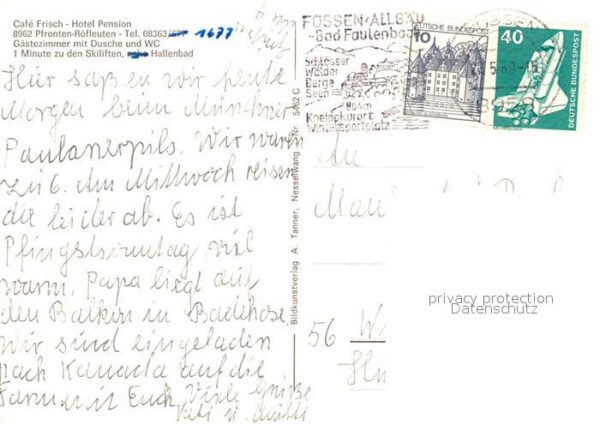 Café Frisch - Hotel Pension
8962 Pfronten-Röfleuten - Tel. 08363/ 1677
Gästezimmer mit Dusche und WC
1 Minute zu den Skiliften, nahe Hallenbad
Hier saßen wir heute
Morgen beim Münchner
Paulanerpils. Wir waren
zu 6. Am Mittwoch reisen
die leider ab. Es ist
Pfingstsonntag viel
warm. Papa liegt auf
den Balkon in Badehose.
Wir sind eingeladen
nach Kanada auf die
Farm mit Euch. Viele Grüße
u. Mutti
Bildkunstverlag A. Tanner, Nesselwang Nr. 5462 C
FÜSSEN/ALLGÄU
-Bad Faulenbach
Schlösser
Wälder
Berge
Seen
804m
Kneippkurort
Wintersportplatz
10
DEUTSCHE BUNDESPOST
40
DEUTSCHE BUNDESPOST
8958
An
56 W
privacy protection
Datenschutz